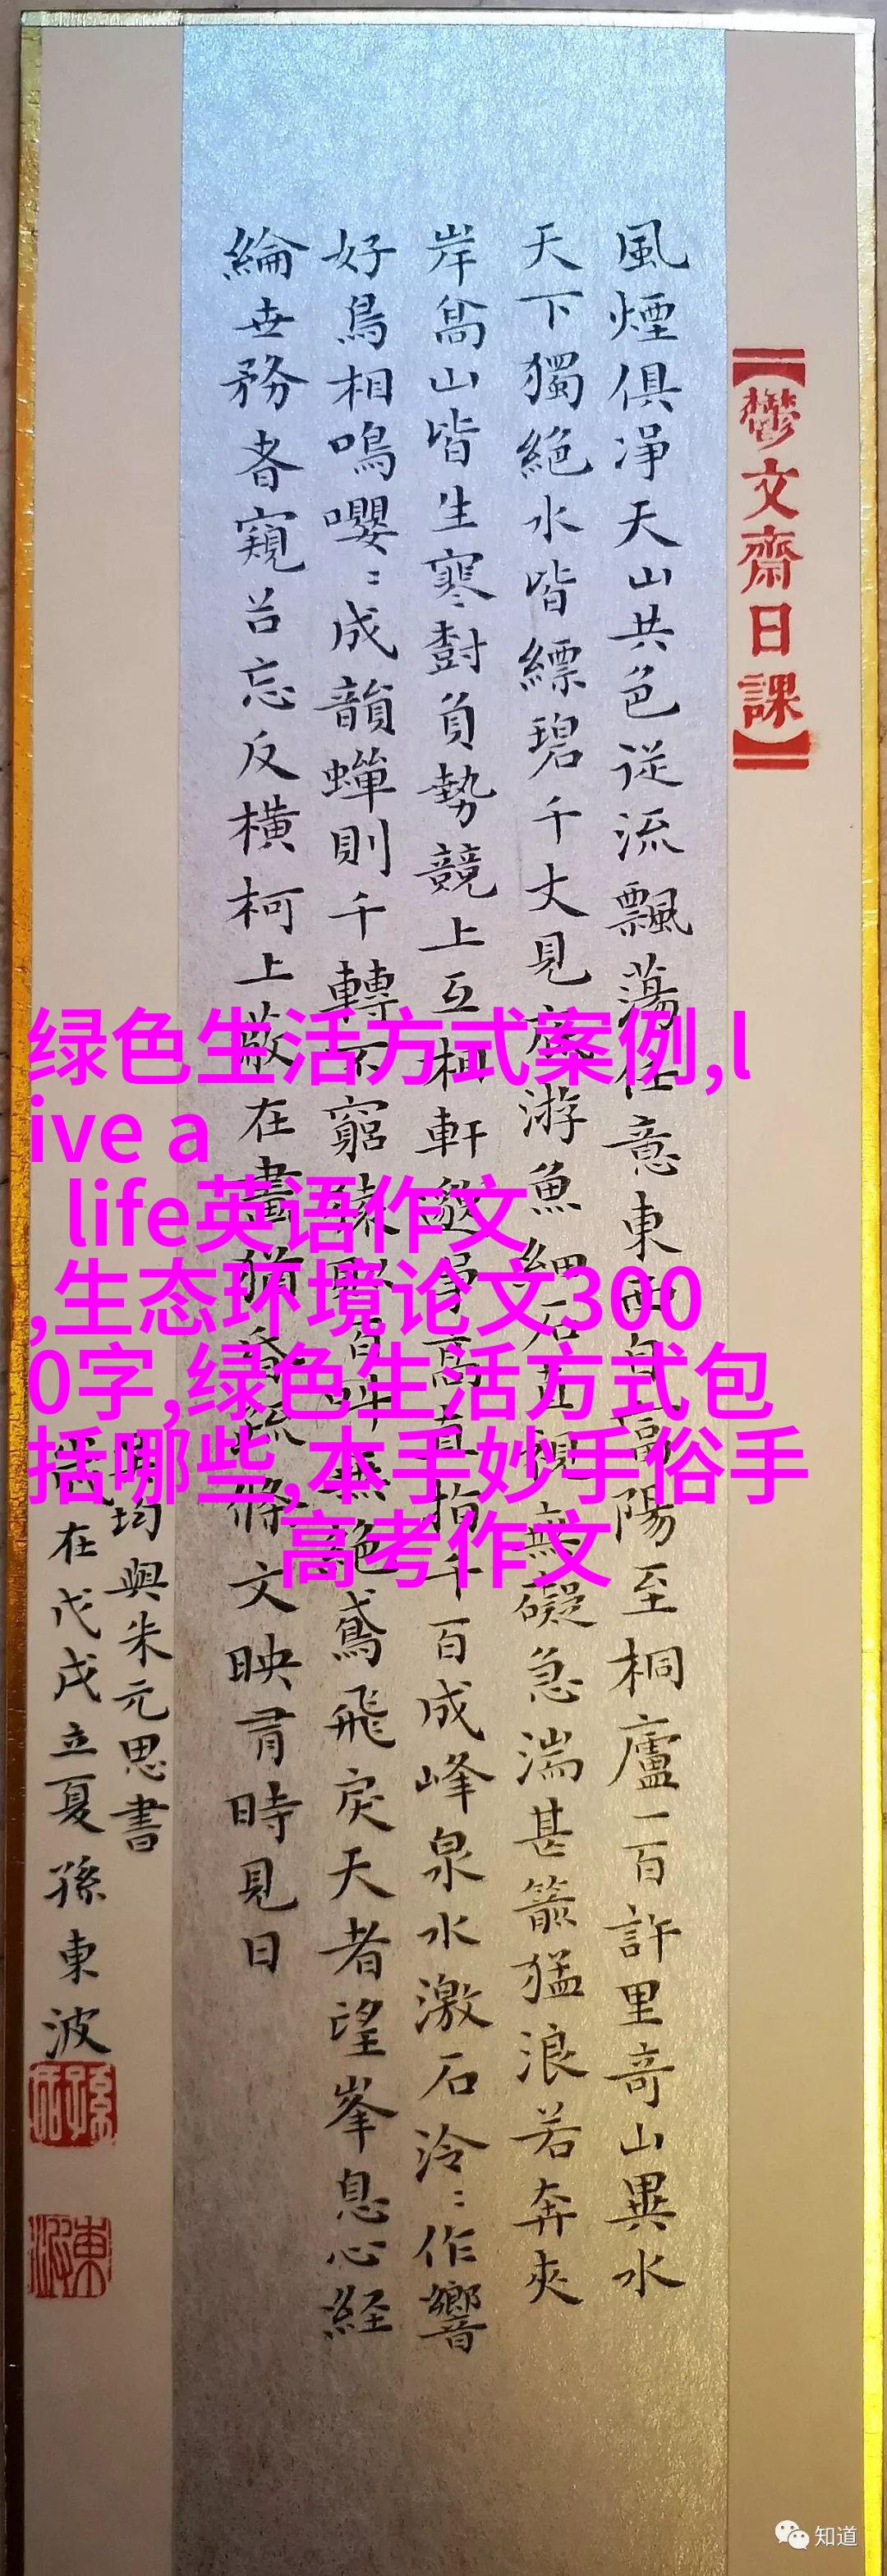 【鬱文齋日課】
風煙俱凈天山共色從流飄蕩任意東西自富陽至桐廬一百許里奇山異水
天下獨絕水皆縹碧千丈見底游魚細石直視無礙急湍甚箭猛浪若奔夾
岸高山皆生寒樹負勢競上互相軒邈爭高直指千百成峰泉水激石泠:作響
好鳥相鳴嚶:成韻蟬則千轉不窮猿則百叫無絕鳶飛戾天者望峯息心経
綸世務者窺谷忘反橫柯上蔽在晝猶昏疏條交映有時見日
吳均與朱元思書
歲在戊戌立夏孫東波
绿色生活方式案例,l
ive a
life英语作文
,生态环境论文300
0字,绿色生活方式包
括哪些,本手妙手俗手
高考作文
知道